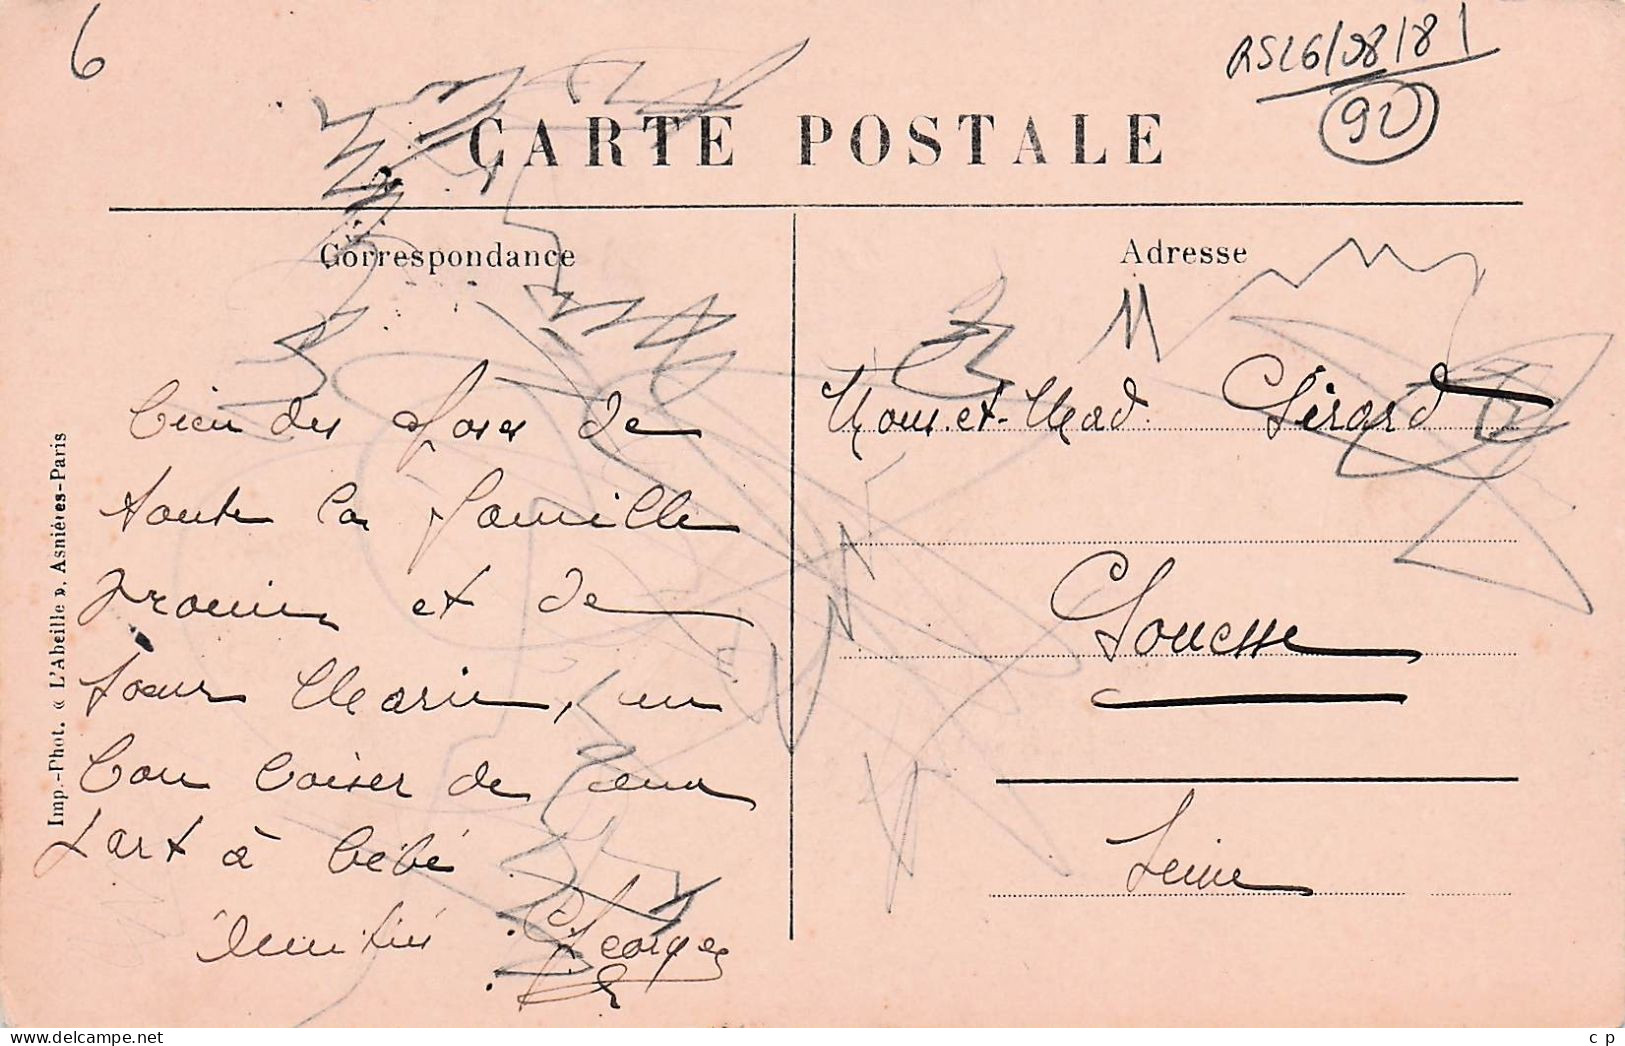 6
92
CARTE POSTALE
Correspondance
Adresse
bien des choses de
toute la famille
et de
soeur Marie, un
bon baiser de
part à bébé
Amitiés Georges
Mons. et Mad. Gérard
Gonesse
Seine
Imp.-Phot. « L'Abeille ». Asnières-Paris
Delcampe.net
c p